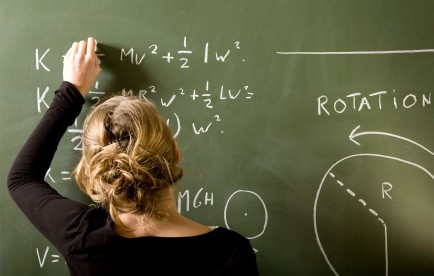 K = ½ Mv² + ½ Iw².
K ½ MR²w² + ½ Iw²=
½ ) w².
K =
MGH
V=
ROTATION
R